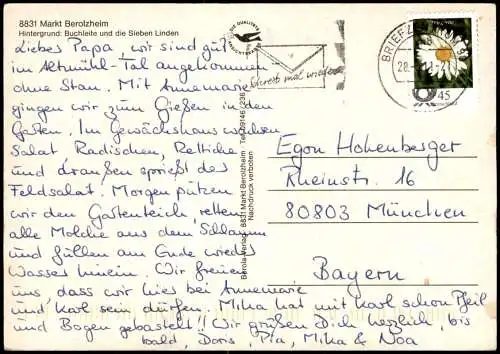 8831 Markt Berolzheim
Hintergrund: Buchleite und die Sieben Linden
Liebes Papa, wir sind gut
im Altmühl-Tal angekommen
ohne Stau. Mit Annemarie
gingen wir zum Gießen in den
Garten. Im Gewächshaus wachsen
Salat Radischen, Rettiche
und draußen sprießt der
Feldsalat. Morgen putzen
wir den Gartenteich, retten
alle Molche aus dem Schlamm
und füllen am Ende wieder
Wasser hinein. Wir freuen
uns, dass wir hier bei Annemarie
und Karl sein dürfen. Mika hat mit Karl schon Pfeil
und Bogen gebastelt!! Wir grüßen Dich herzlich, bis
bald, Doris, Pia, Mika & Noa
Berola-Verlag 8831 Markt Berolzheim Tel. 09146 / 236
Nachdruck verboten
Schreib mal wieder
BRIEFZ
28.
45
Egon Hohenberger
Rheinstr. 16
80803 München
Bayern